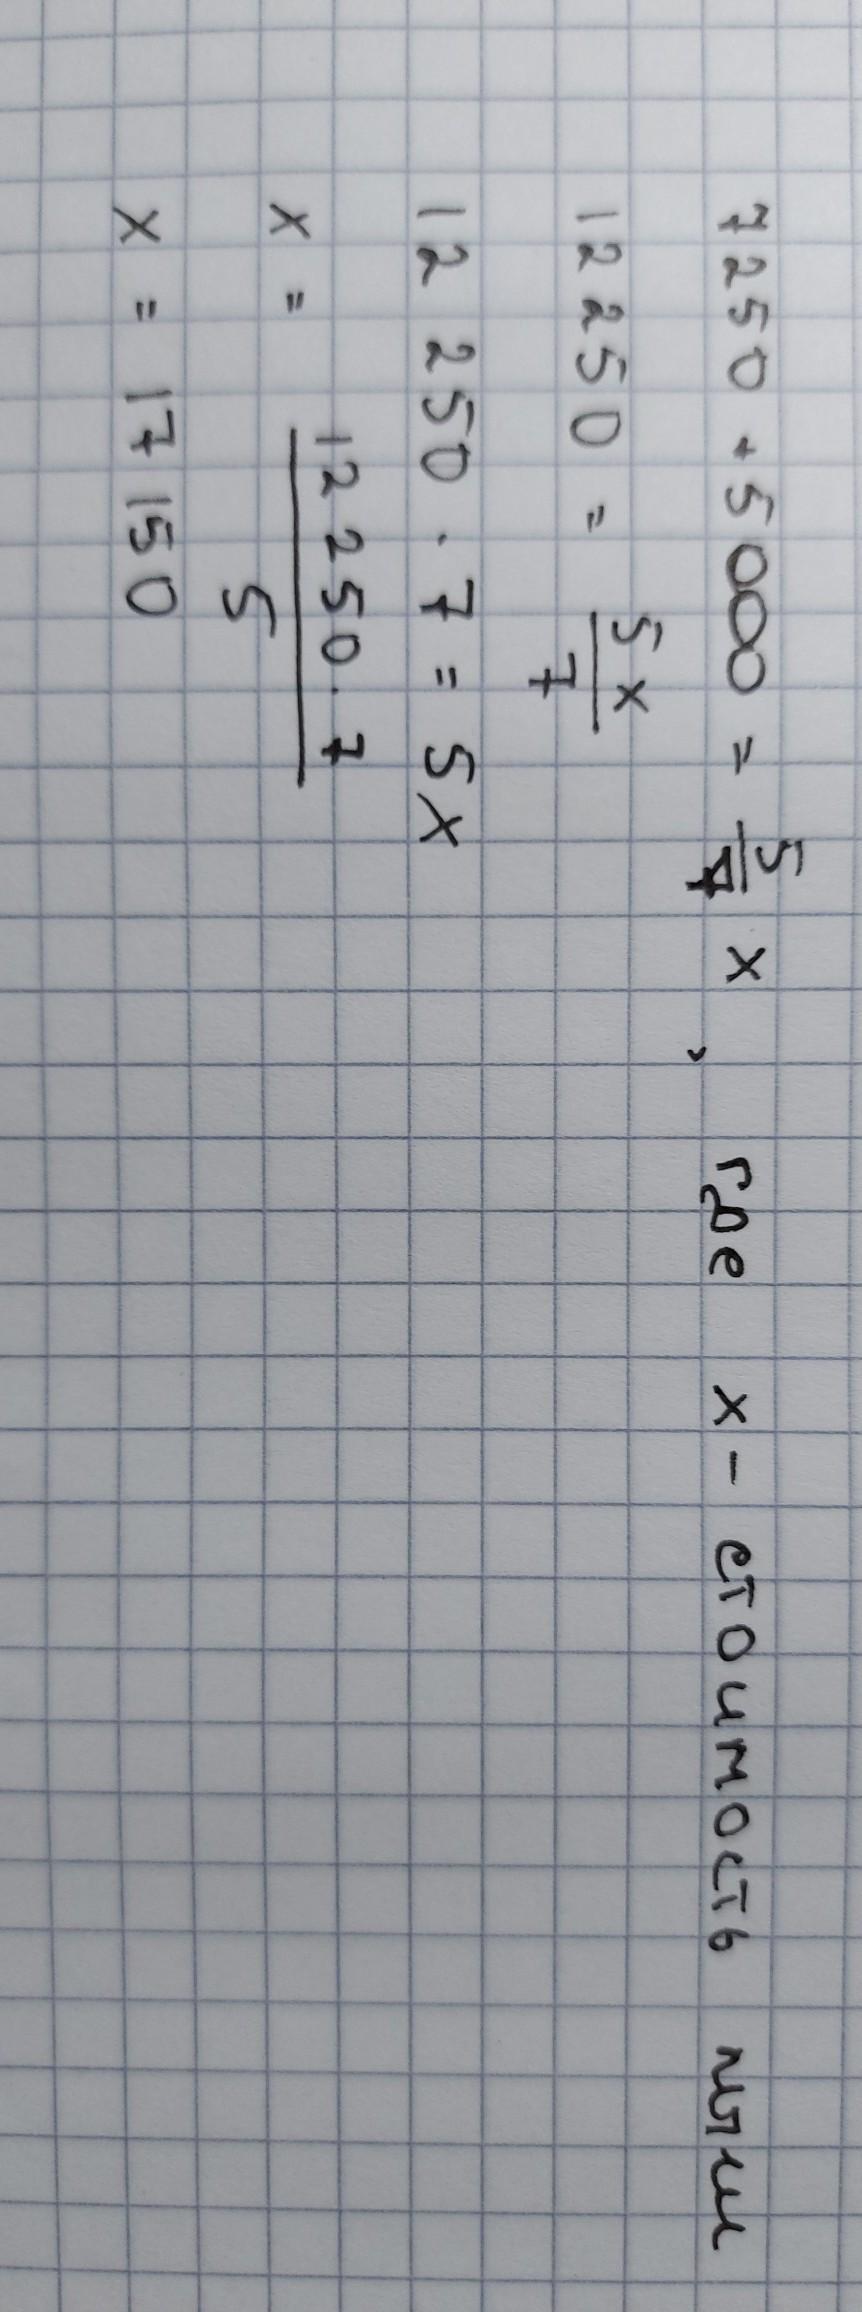 7250 + 5000 = 5/7 x , где x - стоимость
12250 = 5x/7
12 250 · 7 = 5x
x = 12 250 · 7 / 5
x = 17 150